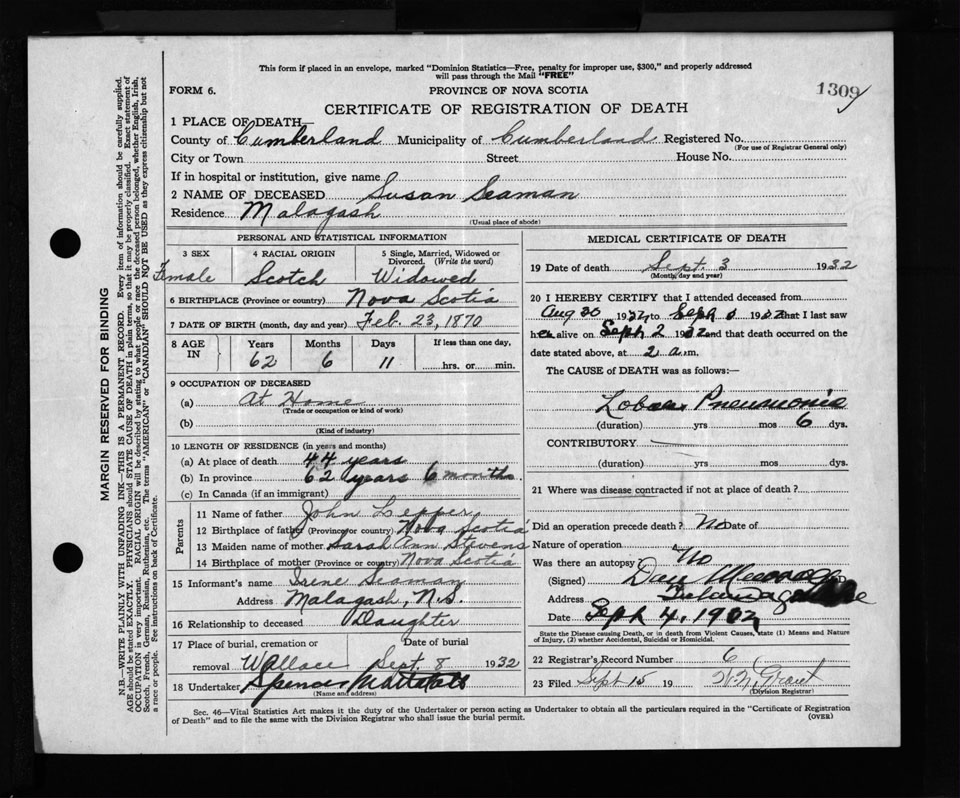 This form if placed in an envelope, marked "Dominion Statistics—Free, penalty for improper use, $300," and properly addressed
will pass through the Mail "FREE"
FORM 6. PROVINCE OF NOVA SCOTIA 1309
CERTIFICATE OF REGISTRATION OF DEATH
1 PLACE OF DEATH—
County of Cumberland Municipality of Cumberland Registered No.
(For use of Registrar General only)
City or Town Street House No.
If in hospital or institution, give name
2 NAME OF DECEASED Susan Seaman
Residence Malagash
(Usual place of abode)
PERSONAL AND STATISTICAL INFORMATION
3 SEX 4 RACIAL ORIGIN 5 Single, Married, Widowed or
Divorced. (Write the word)
Female Scotch Widowed
6 BIRTHPLACE (Province or country) Nova Scotia
7 DATE OF BIRTH (month, day and year) Feb. 23, 1870
8 AGE IN Years Months Days If less than one day,
62 6 11 hrs. or min.
9 OCCUPATION OF DECEASED
(a) At Home
(Trade or occupation or kind of work)
(b)
(Kind of industry)
10 LENGTH OF RESIDENCE (in years and months)
(a) At place of death 44 years
(b) In province 62 years 6 months
(c) In Canada (if an immigrant)
Parents
11 Name of father John
12 Birthplace of father (Province or country) Nova Scotia
13 Maiden name of mother Sarah Ann Stevens
14 Birthplace of mother (Province or country) Nova Scotia
15 Informant's name Irene Seaman
Address Malagash, N.S.
16 Relationship to deceased Daughter
17 Place of burial, cremation or Date of burial
removal Wallace Sept. 8 1932
18 Undertaker Spencer
(Name and address)
MEDICAL CERTIFICATE OF DEATH
19 Date of death Sept. 3 1932
(Month, day and year)
20 I HEREBY CERTIFY that I attended deceased from
Aug 30 1932 to Sept 1932 that I last saw
her alive on Sept 2 1932 and that death occurred on the
date stated above, at 2 a.m.
The CAUSE of DEATH was as follows:—
Lobar Pneumonia
(duration) yrs mos 6 dys.
CONTRIBUTORY
(duration) yrs mos dys.
21 Where was disease contracted if not at place of death?
Did an operation precede death? No Date of
Nature of operation
Was there an autopsy? No
(Signed) Dan
Address
Date Sept 4, 1932
State the Disease causing Death, or in death from Violent Causes, state (1) Means and Nature
of Injury, (2) whether Accidental, Suicidal or Homicidal.
22 Registrar's Record Number 6
23 Filed Sept 15 19 Grant
(Division Registrar)
Sec. 46—Vital Statistics Act makes it the duty of the Undertaker or person acting as Undertaker to obtain all the particulars required in the "Certificate of Registration
of Death" and to file the same with the Division Registrar who shall issue the burial permit. (OVER)
MARGIN RESERVED FOR BINDING
N.B.—WRITE PLAINLY WITH UNFADING INK—THIS IS A PERMANENT RECORD. Every item of information should be carefully supplied.
AGE should be stated EXACTLY. PHYSICIANS should STATE CAUSE OF DEATH in plain terms, so that it may be properly classified. Exact statement of
OCCUPATION is very important. RACIAL ORIGIN will be described by stating to what people or race the deceased person belonged, whether English, Irish,
Scotch, French, German, Russian, Ruthenian, etc. The terms "AMERICAN" or "CANADIAN" SHOULD NOT BE USED as they express citizenship but not
a race or people. See instructions on back of Certificate.